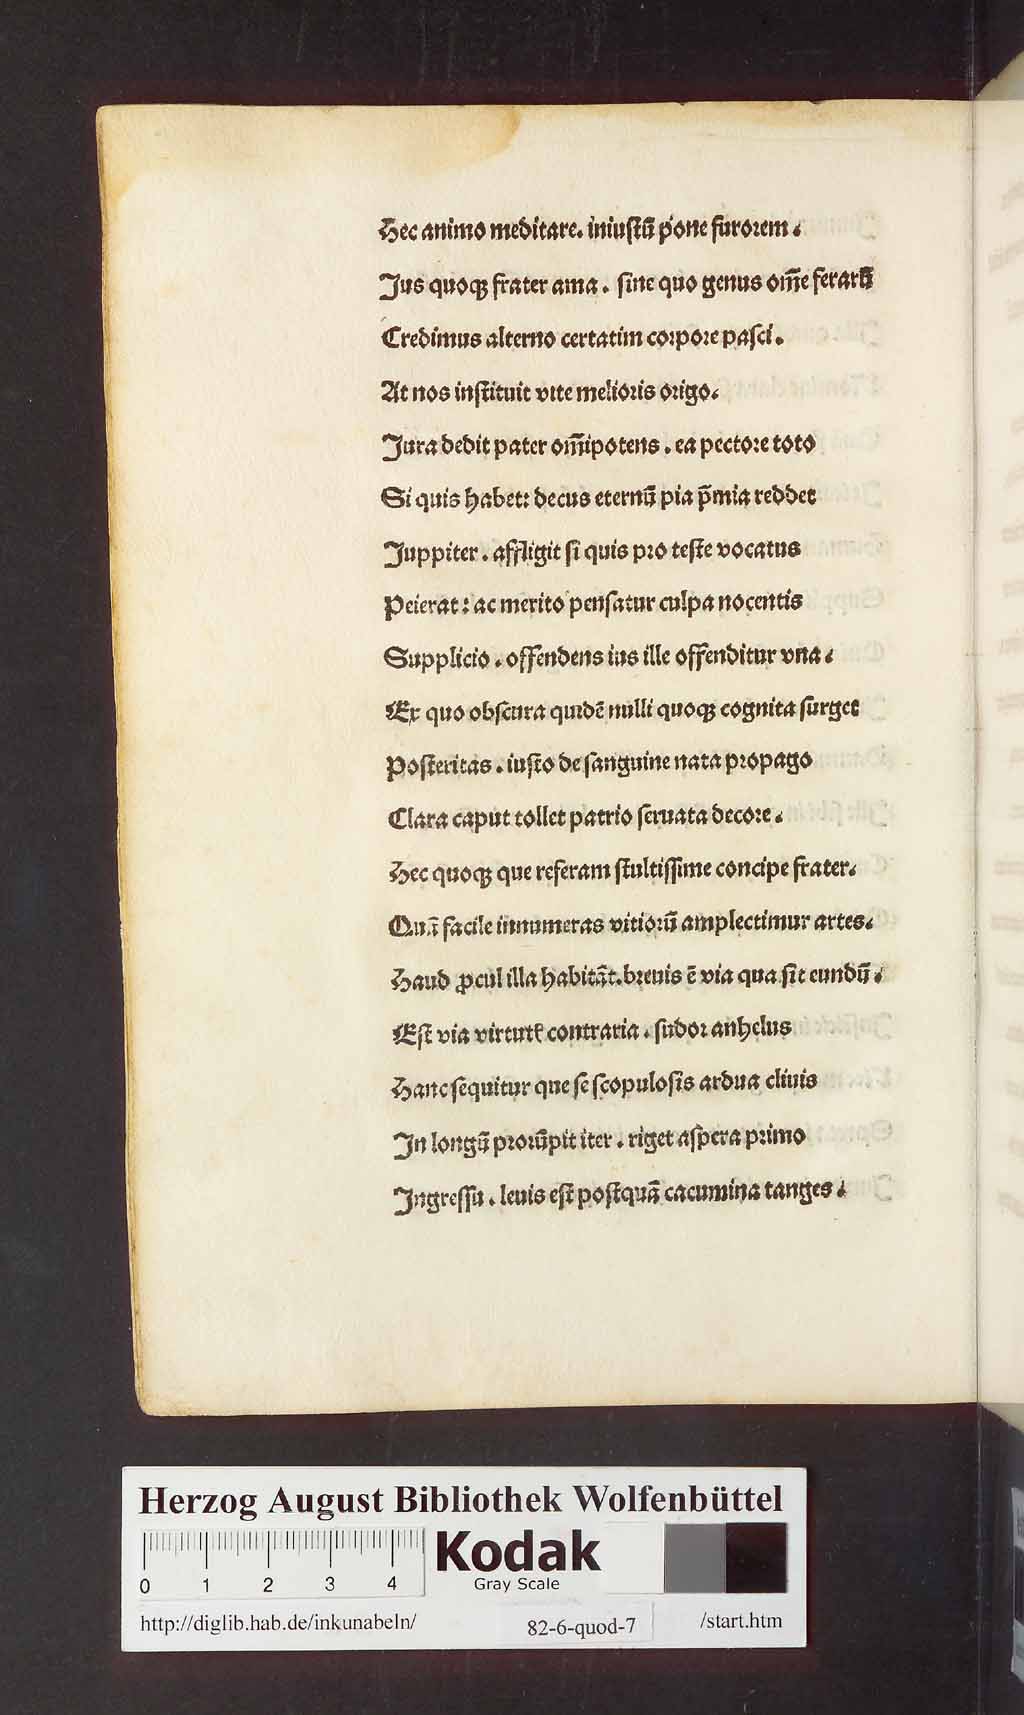 Hec animo meditare. iniustū pone furorem.
Jus quoqꝫ frater ama. sine quo genus om̄e ferarū
Credimus alterno certatim corpore pasci.
At nos instituit vite melioris origo.
Jura dedit pater om̄ipotens. ea pectore toto
Si quis habet: decus eternū pia p̄mia reddet
Juppiter. affligit si quis pro teste vocatus
Peierat: ac merito pensatur culpa nocentis
Supplicio. offendens ius ille offenditur vna.
Ex quo obscura quidē nulli quoqꝫ cognita surget
Posteritas. iusto de sanguine nata propago
Clara caput tollet patrio seruata decore.
Hec quoqꝫ que referam stultissime concipe frater.
Quā facile innumeras vitiorū amplectimur artes.
Haud ꝓcul illa habitāt. breuis ē via qua sit eundū.
Est via virtutꝭ contraria. sudor anhelus
Hanc sequitur que se scopulosis ardua cliuis
In longū prorūpit iter. riget aspera primo
Ingressu. leuis est postquā cacumina tanges.
Herzog August Bibliothek Wolfenbüttel
0 1 2 3 4
Kodak
Gray Scale
http://diglib.hab.de/inkunabeln/ 82-6-quod-7 /start.htm